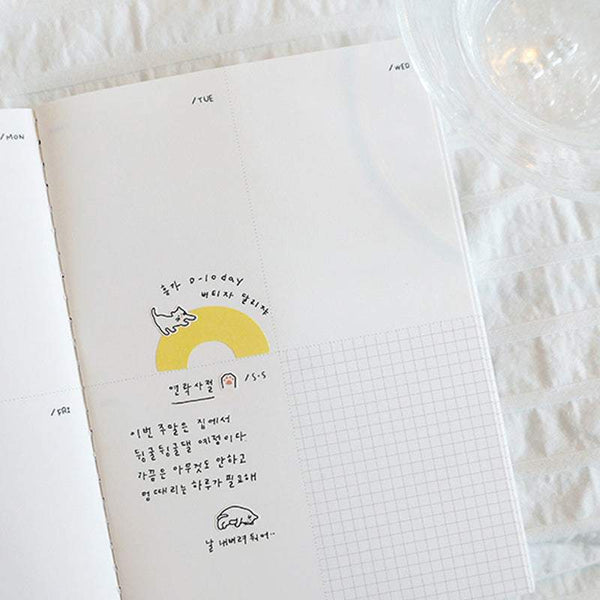 /MON
/TUE
/WED
휴가 D-10day
버티자 말리장
/FRI
연락사절 /S·S
이번 주말은 집에서
뒹굴뒹굴댈 예정이다
가끔은 아무것도 안하고
멍때리는 하루가 필요해
날 내버려 둬어..